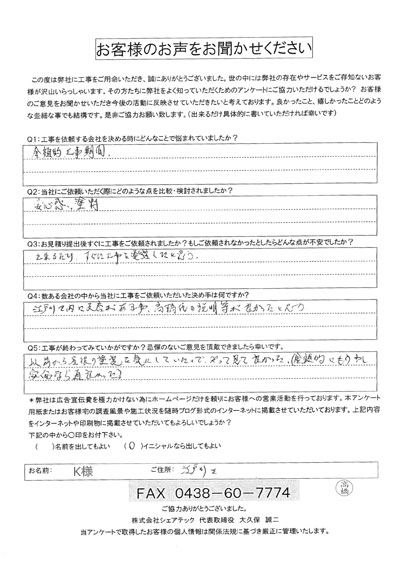 お客様のお声をお聞かせください
この度は弊社に工事をご用命いただき、誠にありがとうございました。世の中には弊社の存在やサービスをご存知ないお客
様が沢山いらっしゃいます。その方たちに弊社をよく知っていただくためのアンケートにご協力いただけるでしょうか? お客様
のご意見をお聞かせいただき今後の活動に反映させていただきたいと考えております。良かったこと、嬉しかったことどのよう
な些細な事でも結構です。是非ご協力お願い致します。(出来るだけ具体的に書いていただければ幸いです)
Q1:工事を依頼する会社を決める時にどんなことで悩まれていましたか?
金額的 工事期間、
Q2:当社にご依頼いただく際にどのような点を比較・検討されましたか?
安心感、塗料
Q3:お見積り提出後すぐに工事をご依頼されましたか?もしご依頼されなかったとしたらどんな点が不安でしたか?
すぐに工事を
Q4:数ある会社の中から当社に工事をご依頼いただいた決め手は何ですか?
江戸川区内に
Q5:工事が終わってみていかがですか?忌憚のないご意見を頂戴できましたら幸いです。
以前から
*弊社は広告宣伝費を極力かけない為にホームページだけを頼りにお客様への営業活動を行っております。本アンケート
用紙またはお客様宅の調査風景や施工状況を随時ブログ形式のインターネットに掲載させていただいております。上記内容
をインターネットや印刷物に掲載させていただいてもよろしいでしょうか?
下記の中から〇印をお付下さい。
( )名前を出してもよい (〇)イニシャルなら出してもよい
お名前: K様 ご住所: 江戸川区
FAX 0438-60-7774
高橋
ご協力ありがとうございました。
株式会社シェアテック 代表取締役 大久保 誠二
当アンケートで取得したお客様の個人情報は関係法規に基づき厳正に管理いたします。